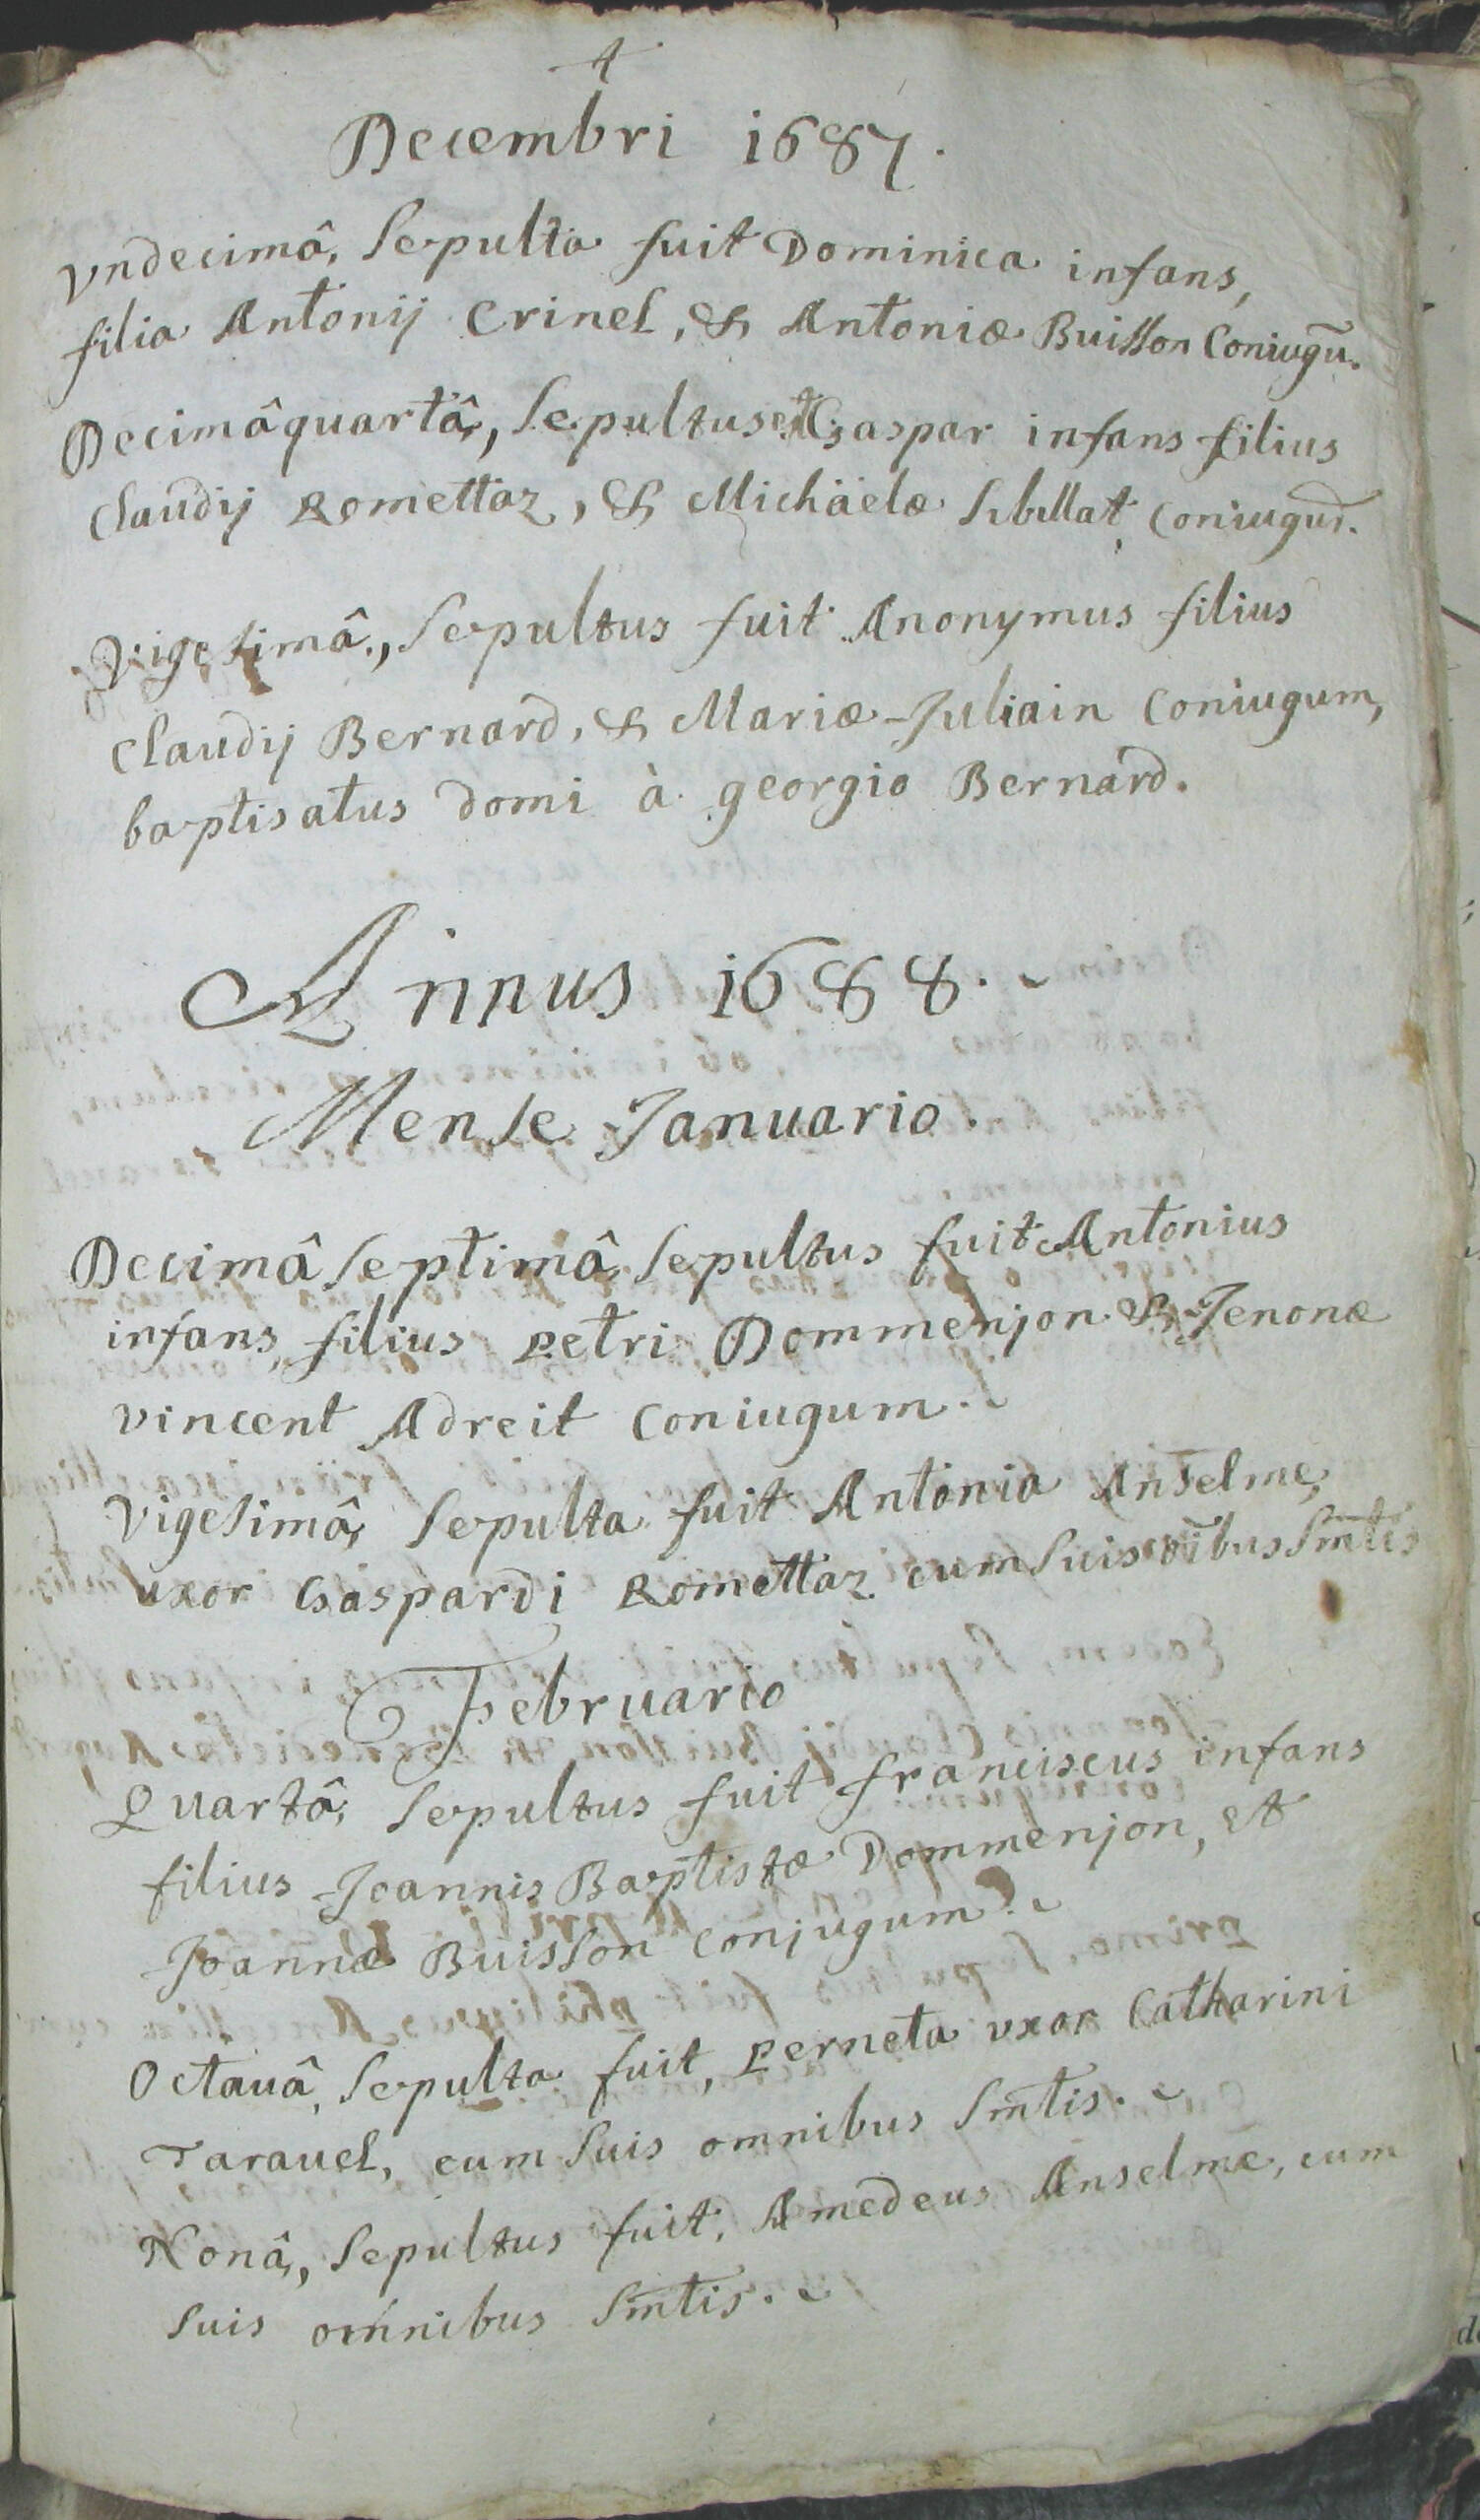 4
Decembri 1687.
Vndecimâ, Sepulta fuit Dominica infans,
filia Antonij Crinel, & Antoniæ Buisson Coniugū.
Decimâquartâ, Sepultus est Gaspar infans filius
Claudij Romettaz, & Michäelæ Sibillat, coniugum.
Vigesimâ, Sepultus fuit Anonymus filius
Claudij Bernard, & Mariæ Juliain Coniugum,
baptisatus domi à georgio Bernard.
Annus 1688.
Mense Januario.
Decimâ Septimâ, Sepultus fuit Antonius
infans, filius Petri Dommenjon & Jenonæ
vincent Adreit Coniugum.
Vigesimâ, Sepulta fuit Antonia Anselme,
uxor Gaspardi Romettaz cum Suis oībus Smtis
Februario
Quartâ, Sepultus fuit franciscus infans
filius Joannis Baptistæ Dommenjon, et
Joannæ Buisson Conjugum.
Octauâ, Sepulta fuit, Perneta vxor Catharini
Tarauel, cum Suis omnibus Smtis.
Nonâ, Sepultus fuit, Amedeus Anselme, cum
Suis omnibus Smtis.